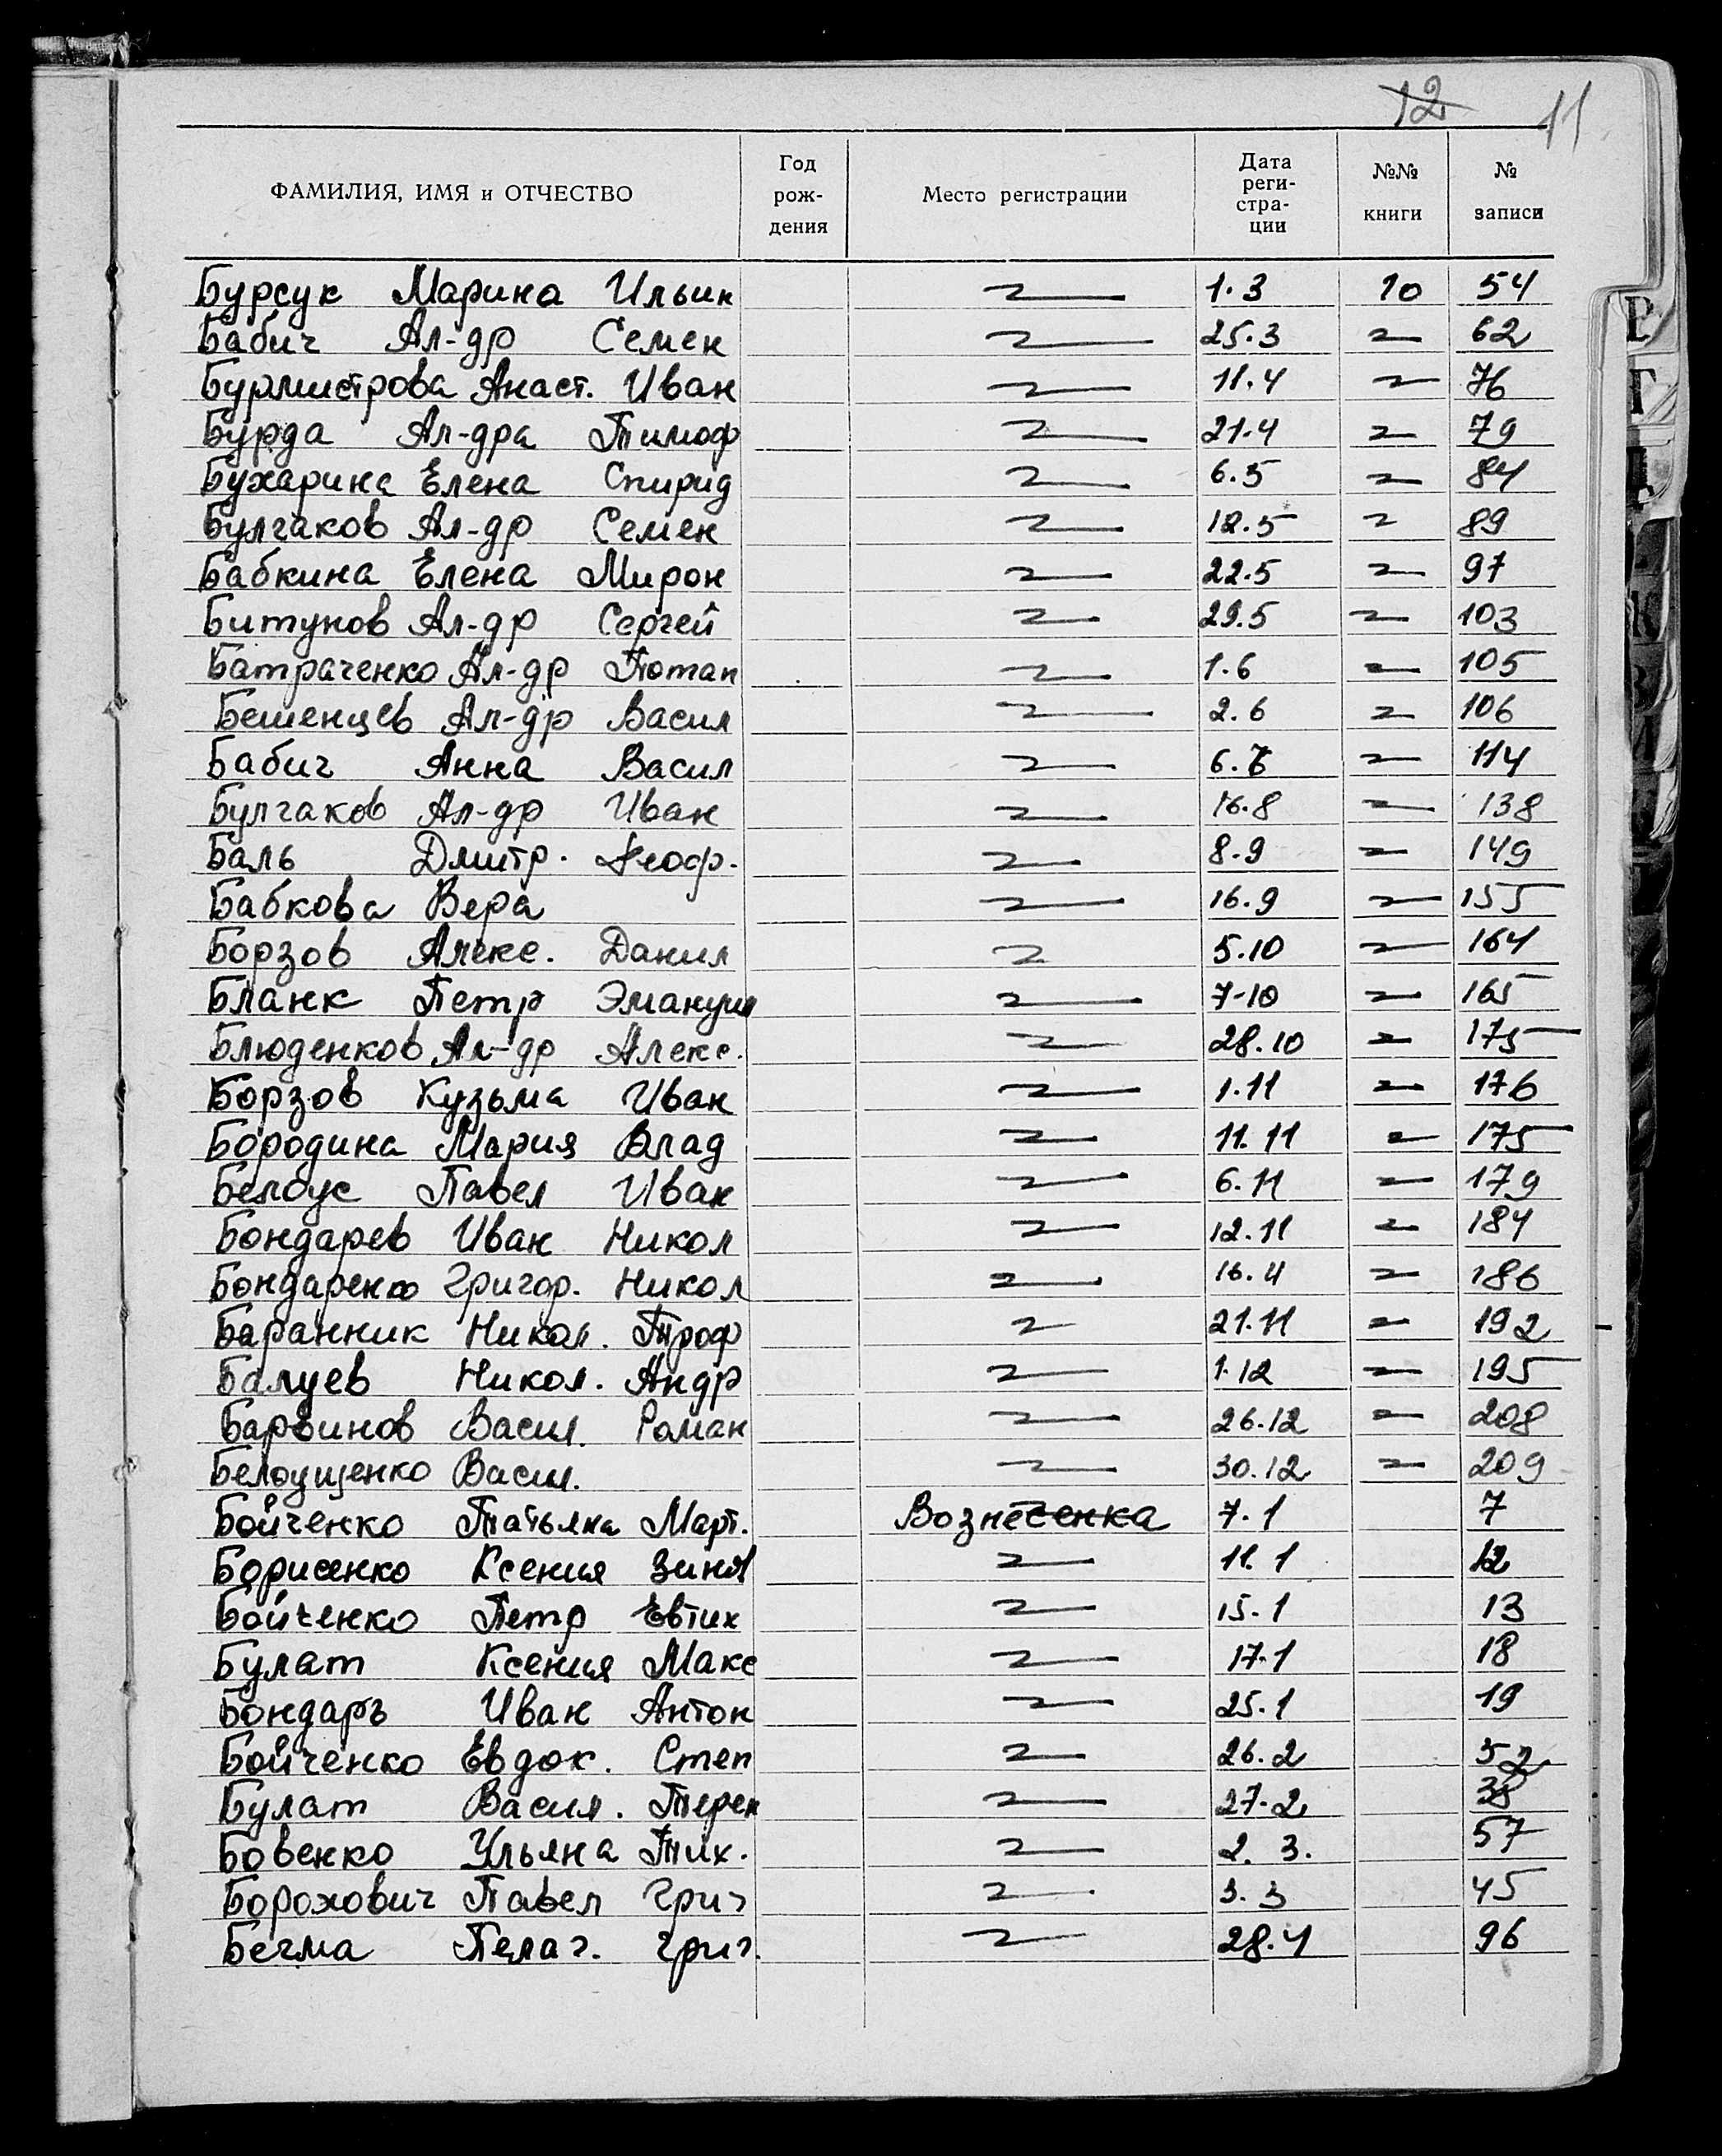 12 11
ФАМИЛИЯ, ИМЯ и ОТЧЕСТВО Год рож- дения Место регистрации Дата реги- стра- ции №№ книги № записи
Бурсук Марина Ильин 1.3 10 54
Бабич Ал-др Семен 25.3 62
Бурмистрова Анаст. Иван 11.4 76
Бурда Ал-дра Тимоф 21.4 79
Бухарина Елена Спирид 6.5 84
Булгаков Ал-др Семен 12.5 89
Бабкина Елена Мирон 22.5 97
Битунов Ал-др Сергей 29.5 103
Батраченко Ал-др Потап 1.6 105
Бешенцев Ал-др Васил 2.6 106
Бабич Анна Васил 6. 114
Булгаков Ал-др Иван 16.8 138
Баль Дмитр. 8.9 149
Бабкова Вера 16.9 155
Борзов Алекс. Данил 5.10 164
Бланк Петр Эмануил 7-10 165
Блюденков Ал-др Алекс. 28.10 175
Борзов Кузьма Иван 1.11 176
Бородина Мария Влад 11.11 175
Белоус Павел Иван 6.11 179
Бондарев Иван Никол 12.11 184
Бондаренко Григор. Никол 16.11 186
Баранник Никол. Троф 21.11 192
Балуев Никол. Андр 1.12 195
Барвинов Васил. Роман 26.12 208
Белоущенко Васил. 30.12 209
Бойченко Татьяна Март. Вознесенка 7.1 7
Борисенко Ксения Зинов 11.1 12
Бойченко Петр Евтих 15.1 13
Булат Ксения Макс 17.1 18
Бондарь Иван Антон 25.1 19
Бойченко Евдок. Степ 26.2 52
Булат Васил. Терен 27.2 38
Бовенко Ульяна Тих. 2. 3. 57
Борохович Павел Григ 3.3 45
Бегма Пелаг. Григ. 28.4 96